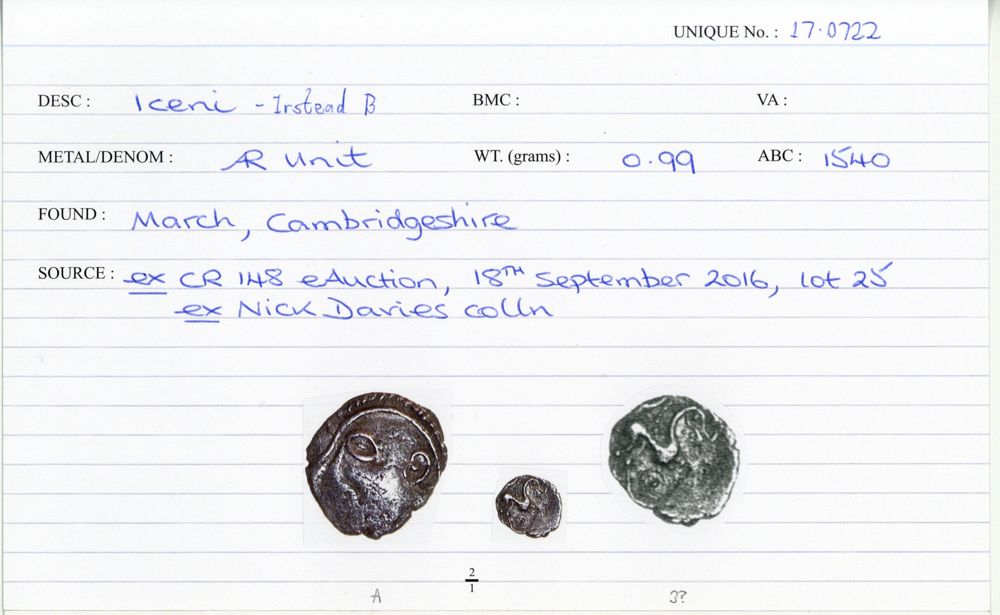 UNIQUE No. : 17.0722
DESC : Iceni - Irstead B BMC : VA :
METAL/DENOM : AR Unit WT. (grams) : 0.99 ABC : 1540
FOUND : March, Cambridgeshire
SOURCE : ex CR 148 eAuction, 18TH September 2016, lot 25
ex Nick Davies colln
2
1
A 3?